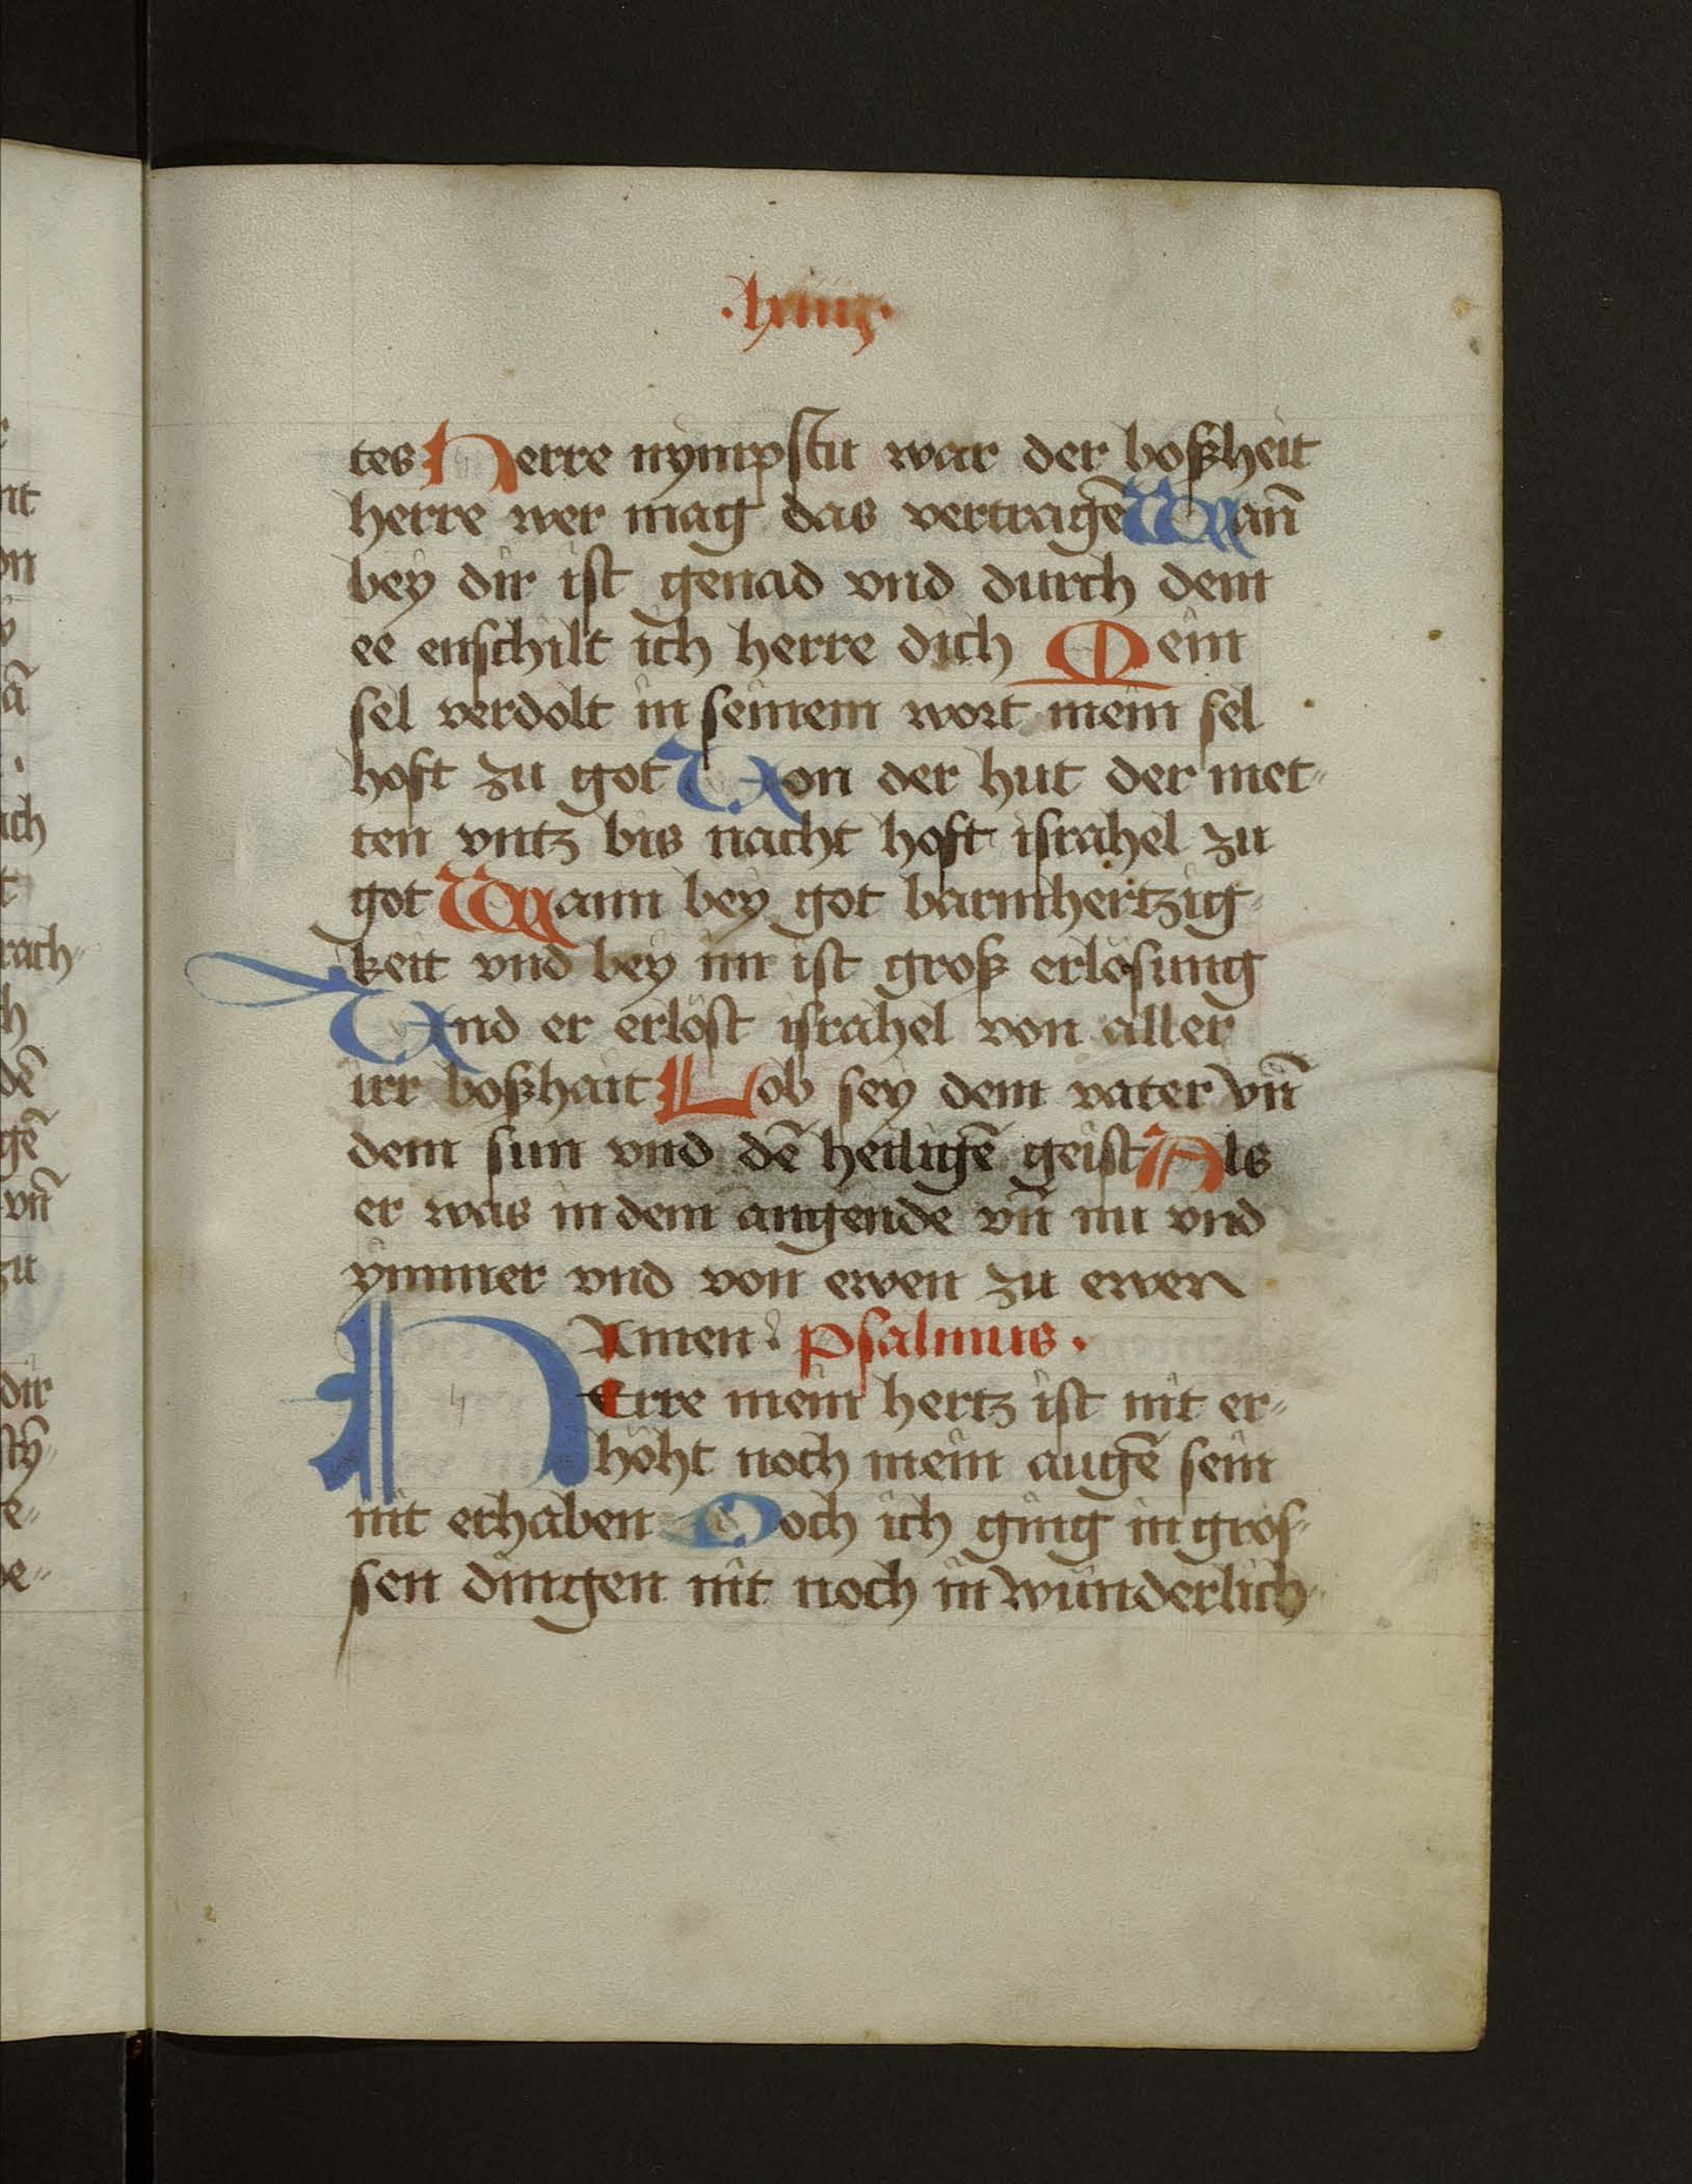 tes Herre nympstu war der boßheit
herre wer mag das vertragē Wann̄
bey dir ist genad vnd durch dein
ee enschilt ich herre dich Mein
sel verdolt in seinem wort mein sel
hoft zu got Von der hut der met-
ten vntz bis nacht hoft israhel zu
got Wann bey got barmhertzig-
keit vnd bey im ist groß erlösung
Vnd er erlöst israhel von aller
irr boßhait Lob sey dem vater vn̄
dem sun vnd dē heiligē geist Als
er was in dem angende vn̄ nu vnd
ymmer vnd von ewen zu ewen
Amen. psalmus.
HErre mein hertz ist nit er-
höht noch mein augē sein
nit erhaben Noch ich ging in gros-
sen dingen nit noch in wunderlich-